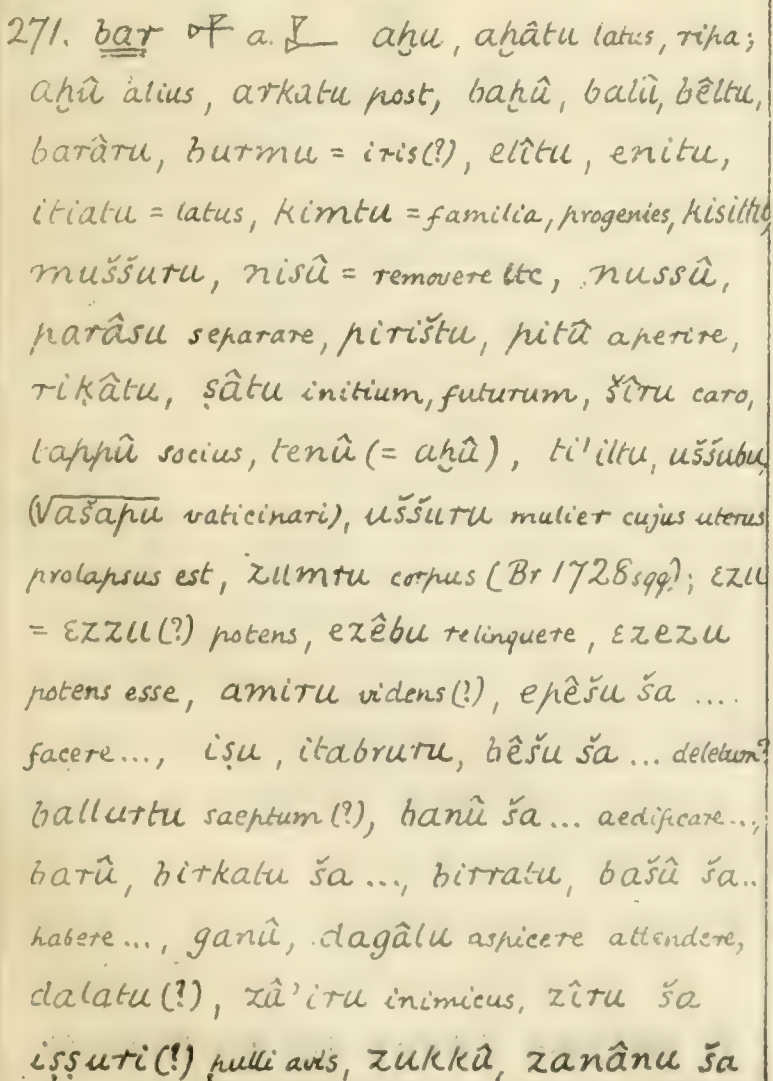 271. bar 𒁇 a. 𒈦 aḫu, aḫâtu latus, ripa;
aḫû alius, arkatu post, baḫû, balû, bêltu,
barâru, burmu = iris(?), elîtu, enitu,
itiatu = latus, kimtu = familia, progenies, kisittu,
muššuru, nisû = removere etc, nussû,
parâsu separare, pirištu, pitû aperire,
riḳâtu, ṣâtu initium, futurum, šîru caro,
tappû socius, tenû (= aḫû), ti'iltu, uššubu,
(√ašapu vaticinari), uššuru mulier cujus uterus
prolapsus est, zumru corpus (Br 1728sqq.); ezu
= ezzu(?) potens, ezêbu relinquere, ezezu
potens esse, amiru videns(?), epêšu ša ....
facere..., iṣu, itabruru, bêšu ša ... deletum?
ballurtu saeptum (?), banû ša ... aedificare...,
barû, birkatu ša ..., birratu, bašû ša..
habere ..., ganû, dagâlu aspicere attendere,
dalatu (?), zâ'iru inimicus, zîru ša
iṣṣuri(?) pulli avis, zukkû, zanânu ša